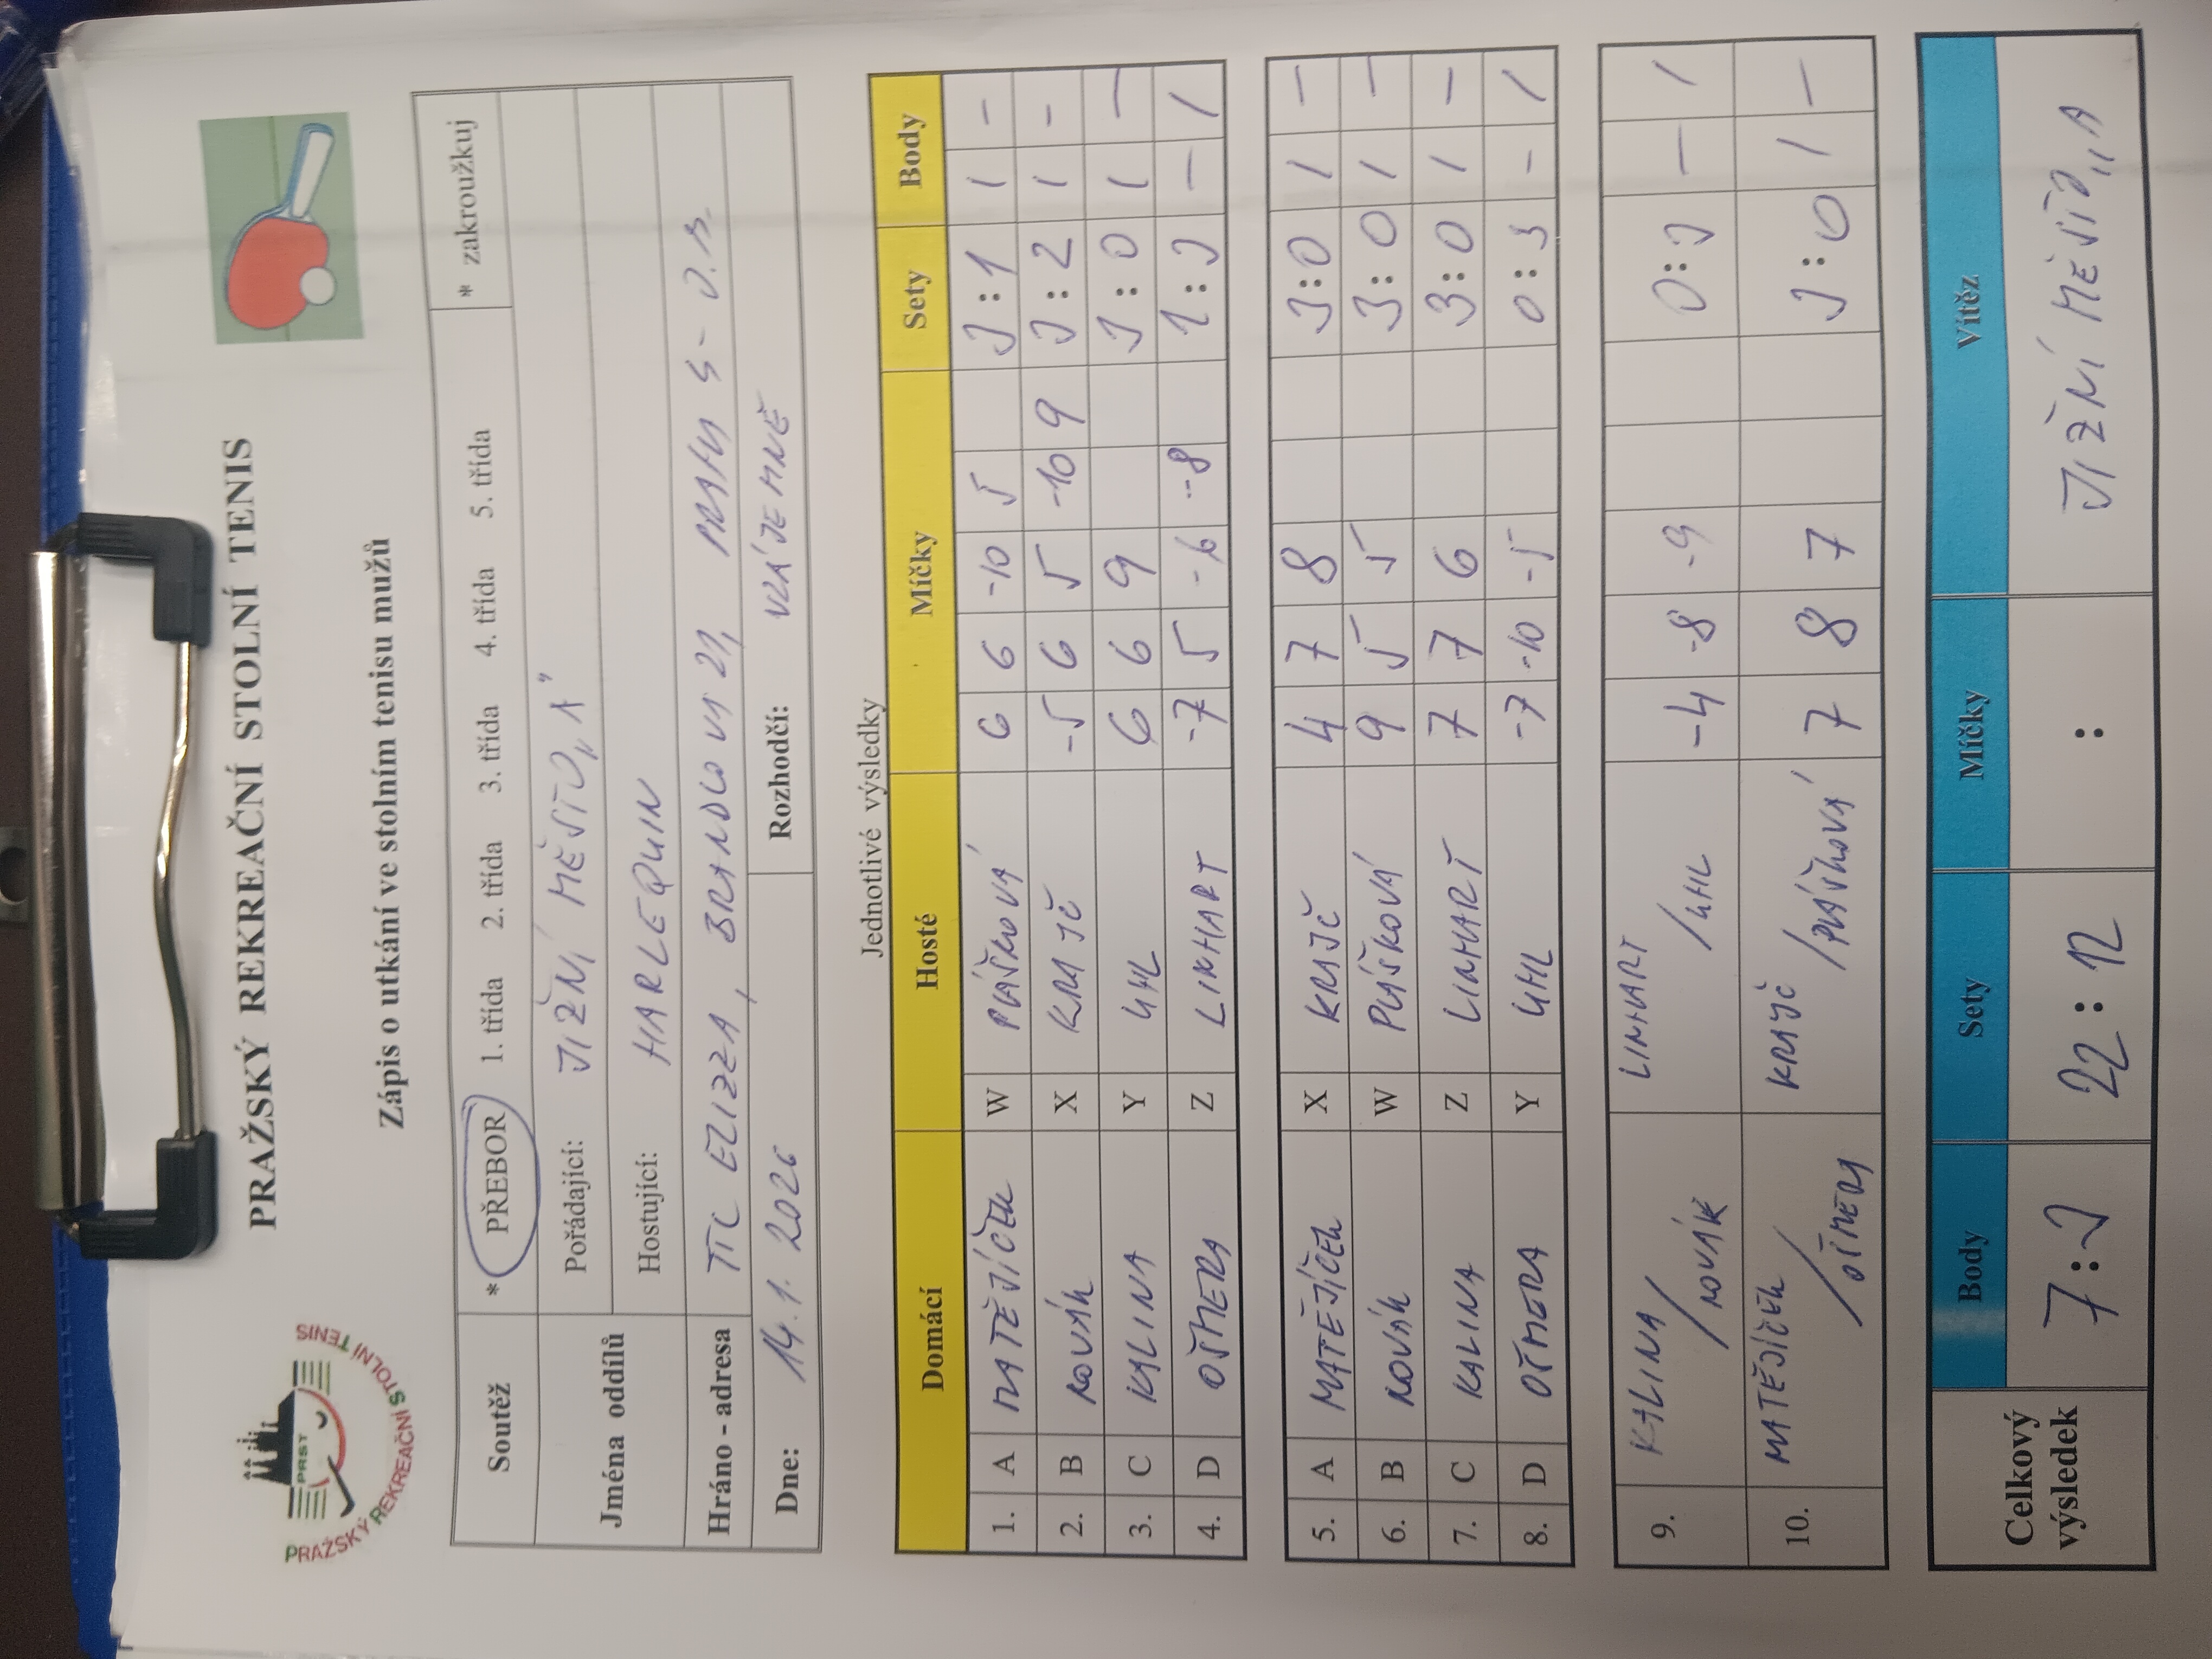 PRAŽSKÝ REKREAČNÍ STOLNÍ TENIS
PRST
PRAŽSKÝ REKREAČNÍ STOLNÍ TENIS
Zápis o utkání ve stolním tenisu mužů
Soutěž * PŘEBOR 1. třída 2. třída 3. třída 4. třída 5. třída * zakroužkuj
Jména oddílů Pořádající: JIŽNÍ MĚSTO „A“
Hostující: HARLEQUIN
Hráno - adresa TTC ELIZZA, BRANDLOVA 27, PRAHA 4 -
Dne: 14. 1. 2026 Rozhodčí: VZÁJEMNĚ
Jednotlivé výsledky
Domácí Hosté Míčky Sety Body
1. A MATĚJÍČEK W PLÁŠKOVÁ 6 6 -10 5 3 : 1 1 -
2. B NOVÁK X KRAJČ -5 6 5 -10 9 3 : 2 1 -
3. C KALINA Y UHL 6 6 9 3 : 0 1 -
4. D OŠMERA Z LINHART -7 5 -6 -8 1 : 3 - 1
5. A MATĚJÍČEK X KRAJČ 4 7 8 3 : 0 1 -
6. B NOVÁK W PLÁŠKOVÁ 9 5 5 3 : 0 1 -
7. C KALINA Z LINHART 7 7 6 3 : 0 1 -
8. D OŠMERA Y UHL -7 -10 -5 0 : 3 - 1
9. KALINA / NOVÁK LINHART / UHL -4 -8 -9 0 : 3 - 1
10. MATĚJÍČEK / OŠMERA KRAJČ / PLÁŠKOVÁ 7 8 7 3 : 0 1 -
Celkový výsledek Body Sety Míčky Vítěz
7 : 3 22 : 12 : JIŽNÍ MĚSTO „A